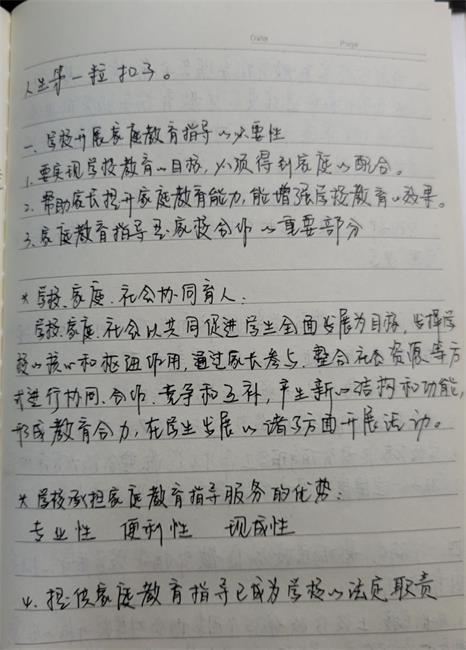 Date
Page
人生第一粒扣子。
一、学校开展家庭教育指导的必要性
1.要实现学校教育的目标,必须得到家庭的配合。
2.帮助家长提升家庭教育能力,能增强学校教育的效果。
3.家庭教育指导是家校合作的重要部分
*学校、家庭、社会协同育人:
学校、家庭、社会以共同促进学生全面发展为目标,发挥学
校的核心和枢纽作用,通过家长参与、整合社会资源等方
式进行协同、合作、竞争和互补,产生新的结构和功能,
形成教育合力,在学生发展的诸多方面开展活动。
*学校承担家庭教育指导服务的优势:
专业性 便利性 现成性
4.提供家庭教育指导已成为学校的法定职责